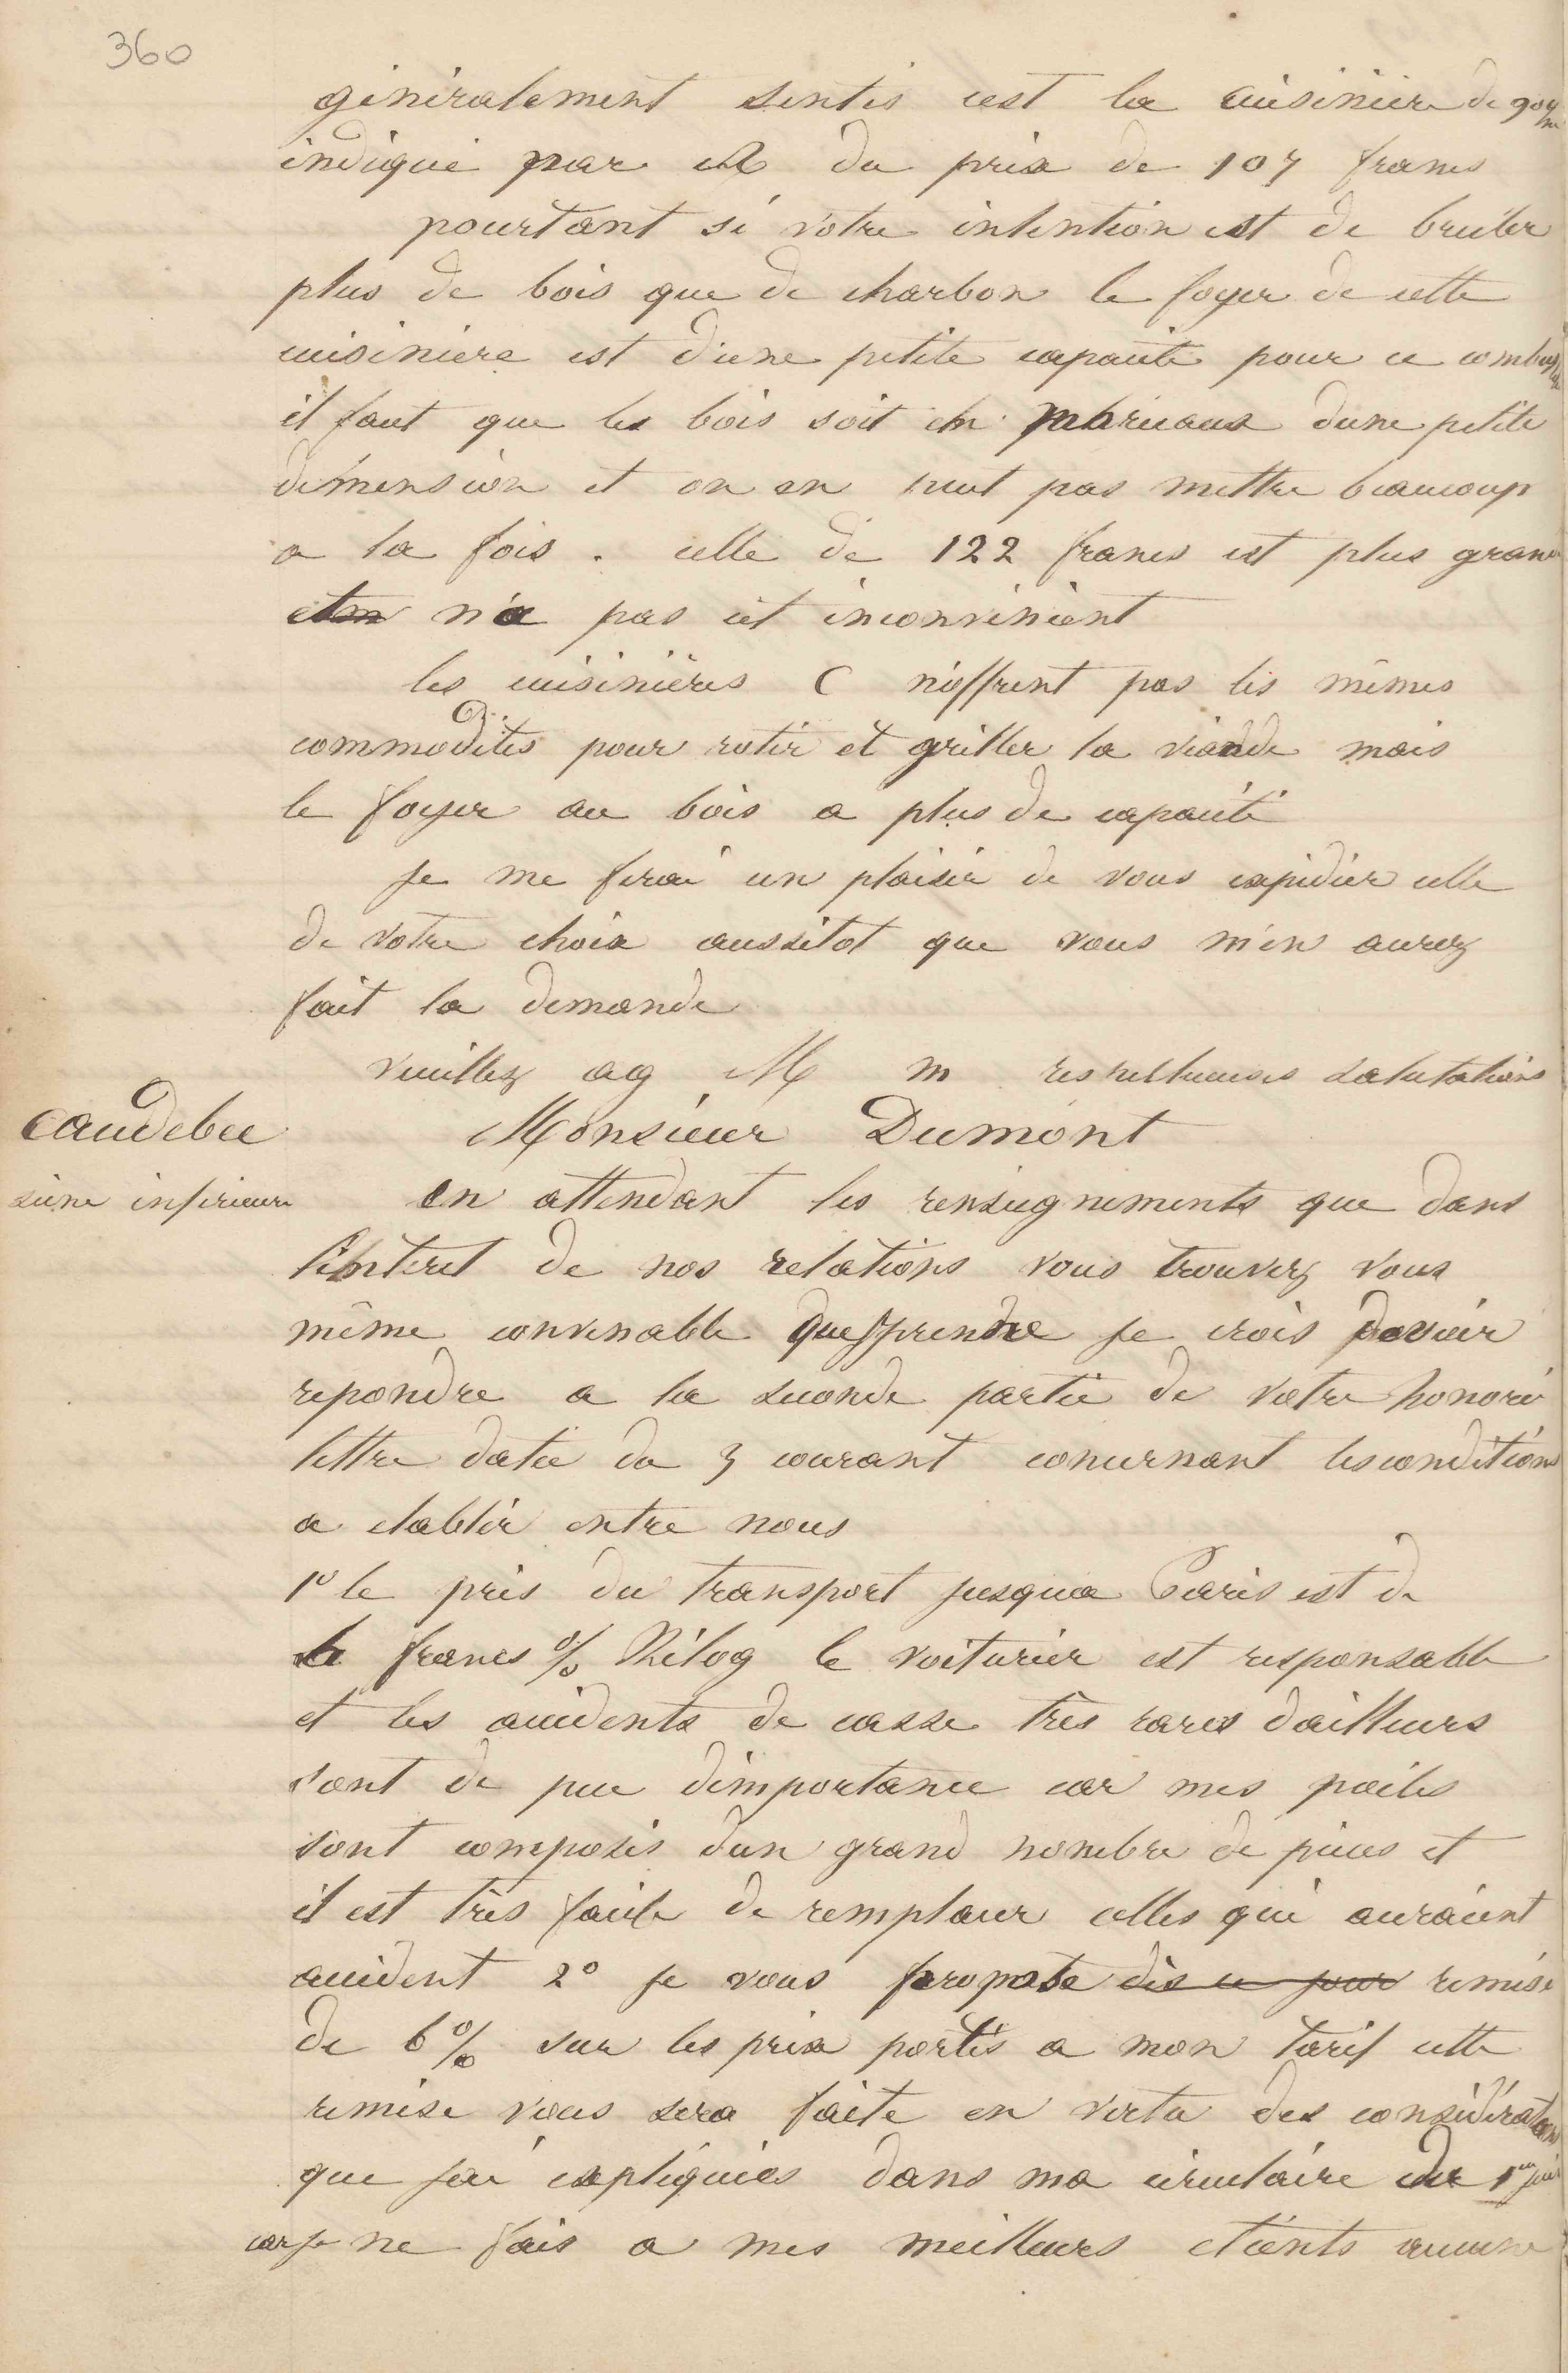 360
généralement sentis cest la cuisinière de 90 c/m
indiqué par A du prix de 107 francs
pourtant si votre intention est de bruler
plus de bois que de charbon le foyer de cette
cuisiniere est d'une petite capacité pour ce combustible
il faut que les bois soit en morceaux dune petite
dimension et on en peut pas mettre beaucoup
a la fois . celle de 122 francs est plus grande
n'a pas cet inconvénient
les cuisinières C n'offrent pas les mêmes
commodités pour rotir et griller la viande mais
le foyer au bois a plus de capacité
je me ferai un plaisir de vous expédier celle
de votre choix aussitot que vous m'en aurez
fait la demande
veuillez ag M m respectueuses salutations
Caudebec Monsieur Dumont
seine inferieure en attendant les renseignements que dans
l'interet de nos relations vous trouvez vous
même convenable prendre je crois devoir
repondre a la seconde partie de votre honoré
lettre datée du 3 courant concernant les conditions
a etablir entre nous
1º le pris du transport jusqua Paris est de
francs % Kilog le voiturier est responsable
et les accidents de casse très rares dailleurs
sont de peu dimportance car mes poeles
sont composés dun grand nombre de pieces et
il est très facile de remplacer celles qui auraient
accident 2º je vous propose dès ce jour remise
de 6 % sur les prix portés a mon tarif cette
remise vous sera faite en vertu des considérations
que jai expliquées dans ma circulaire du 1er juin
car je ne fais a mes meilleurs clients aucune